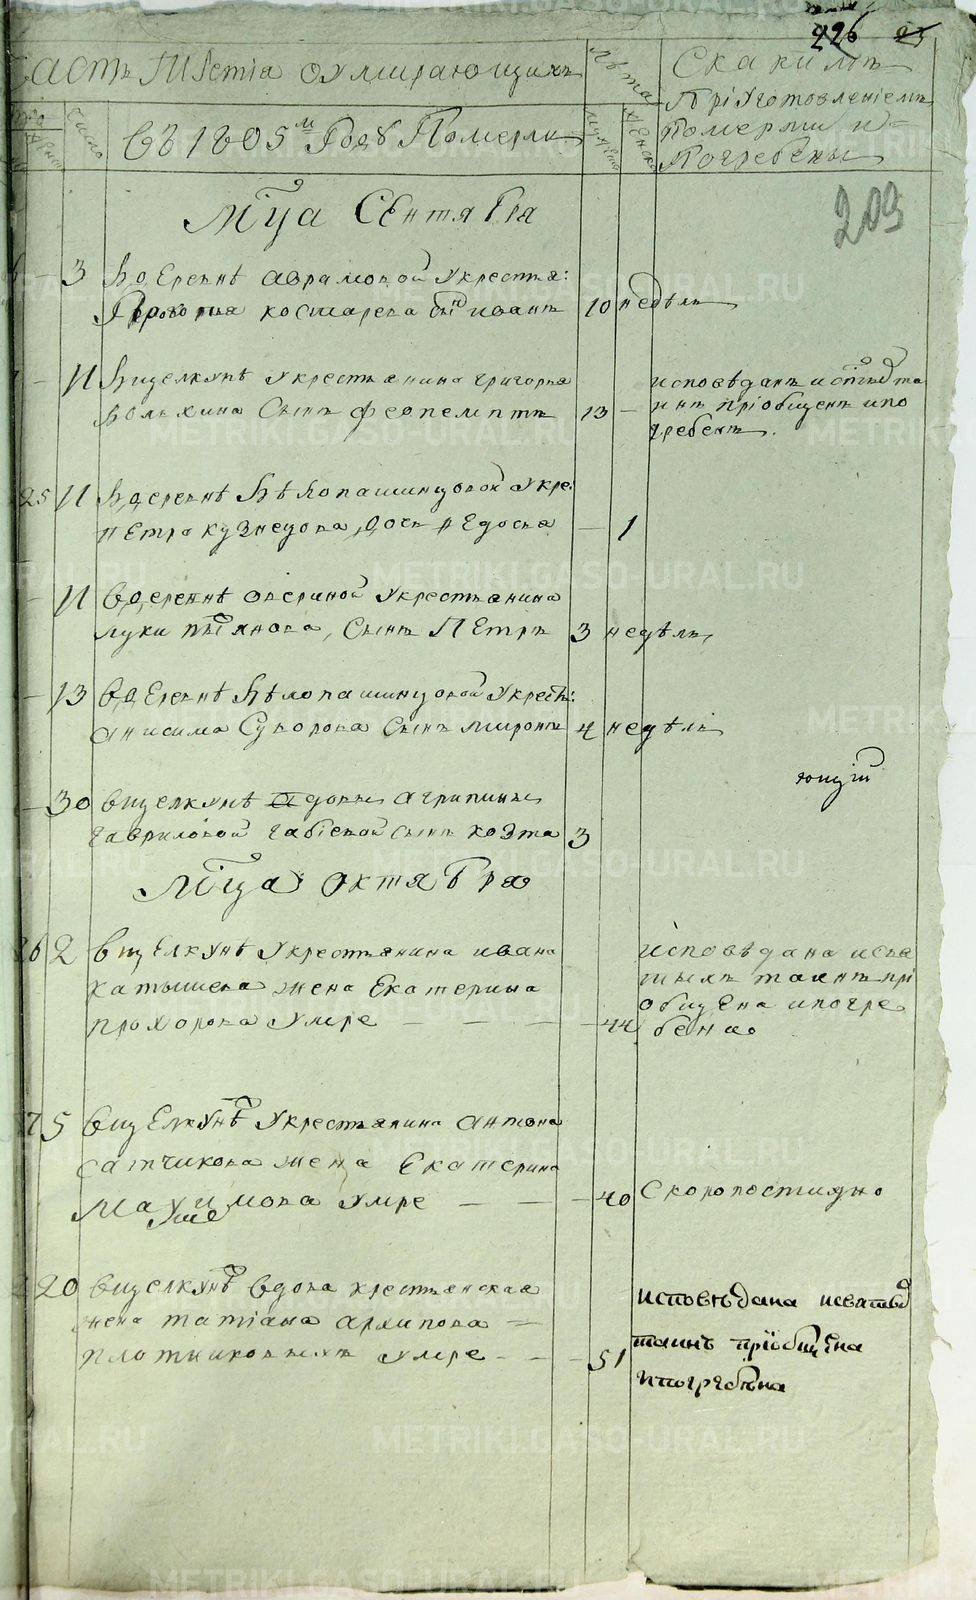 226
209
часть III. третiа оумирающихъ
Лѣта
Скакимъ
Въ 1805 м Годꙋ Померли
прiуготовленiемъ
померли и
погребены
число
Мца Сентября
3 Въ деревнѣ аврамовой укрестья:
костарева сынъ иванъ 10 недѣль
11 Вщелкунѣ укрестьянина григорья
Волхина Сынъ феопемптъ 13
исповѣданъ и
инъ прiобщенъ ипо
гребенъ.
25 11 Въ деревнѣ Бѣлопашинцовой укре:
Петра кузнецова дочь Федосья 1
11 Вдеревнѣ овсяной укрестьянина
луки пьянова, Сынъ Петръ 3 недѣль
13 Вдеревнѣ Бѣлопашинцовой укресть:
анисима Суворова Сынъ миронъ 4 недѣль
ющiй
30 вщелкунѣ вдовы агрипины
гавриловой сынъ козма 3
Мца октября
26 2 Вщелкунѣ Укрестьянина ивана
катышева жена Екатерина
прохорова умре 44
Исповѣдана исвя
тыхъ таинъ прi
общена ипогре
бена
5 Вщелкунѣ Укрестьянина антона
сатчикова жена Екатерина
Маѯимова умре 40
Скоропостижно
20 Вщелкунѣ вдова крестьянская
жена татiана архипова
плотниковыхъ умре 51
исповѣдана исвятыхъ
таинъ прiобщена
ипогребена